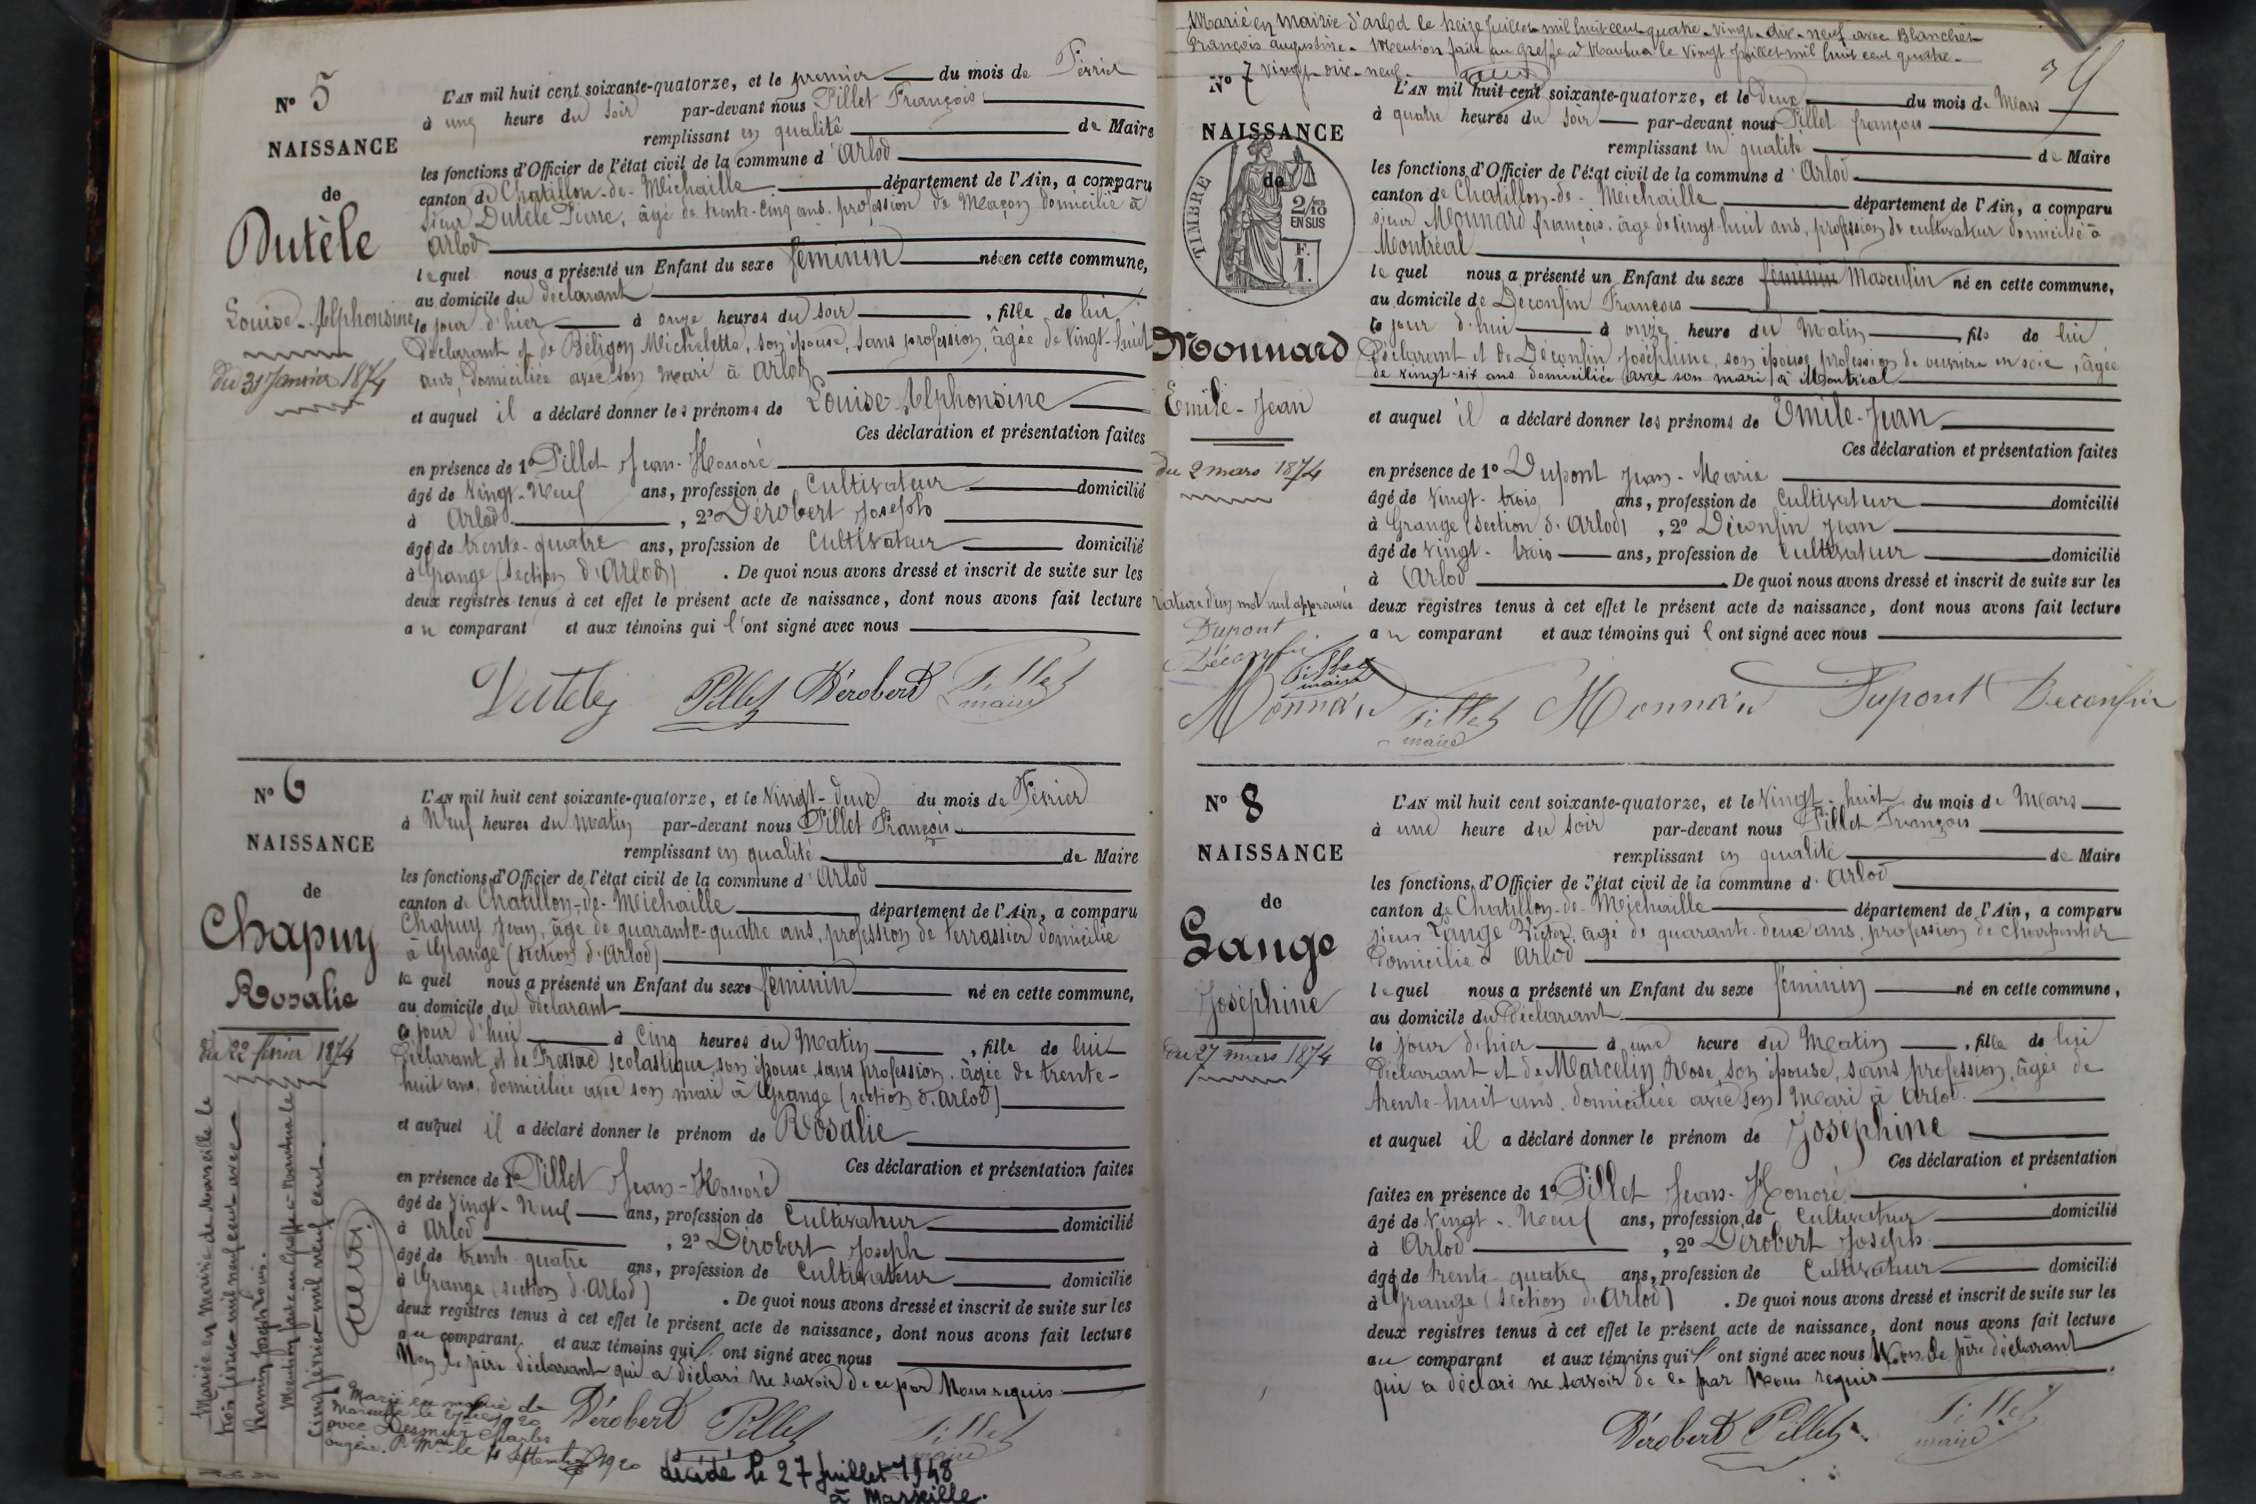 N° 5
NAISSANCE
de
Dutèle
Louise-Alphonsine
du 31 Janvier 1874
L'AN mil huit cent soixante-quatorze, et le premier du mois de Février
à une heure du soir par-devant nous Pillet François
remplissant en qualité de Maire
les fonctions d'Officier de l'état civil de la commune d'Arlod
canton de Chatillon-de-Michaille département de l'Ain, a comparu
sieur Dutèle Pierre, âgé de trente-cinq ans, profession de Maçon domicilié à
Arlod
lequel nous a présenté un Enfant du sexe féminin née en cette commune,
au domicile du déclarant
le jour d'hier à onze heures du soir, fille de lui
Déclarant et de Béligon Michelette, son épouse, sans profession, âgée de vingt-huit
ans, domiciliée avec son mari à Arlod
et auquel il a déclaré donner les prénoms de Louise-Alphonsine
Ces déclaration et présentation faites
en présence de 1° Pillet Jean-Honoré
âgé de vingt-neuf ans, profession de Cultivateur domicilié
à Arlod, 2° Dérobert Joseph
âgé de trente-quatre ans, profession de Cultivateur domicilié
à Grange (section d'Arlod). De quoi nous avons dressé et inscrit de suite sur les
deux registres tenus à cet effet le présent acte de naissance, dont nous avons fait lecture
au comparant et aux témoins qui l'ont signé avec nous
Pillet Dérobert Pillet
maire
N° 6
NAISSANCE
de
Chapuy
Rosalie
du 22 février 1874
L'AN mil huit cent soixante-quatorze, et le Vingt-deux du mois de Février
à Neuf heures du matin par-devant nous Pillet François
remplissant en qualité de Maire
les fonctions d'Officier de l'état civil de la commune d'Arlod
canton de Chatillon-de-Michaille département de l'Ain, a comparu
Chapuy Jean, âgé de quarante-quatre ans, profession de terrassier domicilié
à Grange (section d'Arlod)
lequel nous a présenté un Enfant du sexe féminin né en cette commune,
au domicile du déclarant
ce jour d'hui à Cinq heures du Matin, fille de lui
Déclarant et de Fressac scolastique, son épouse, sans profession, âgée de trente-
huit ans, domiciliée avec son mari à Grange (section d'Arlod)
et auquel il a déclaré donner le prénom de Rosalie
Ces déclaration et présentation faites
en présence de 1° Pillet Jean-Honoré
âgé de vingt-neuf ans, profession de Cultivateur domicilié
à Arlod, 2° Dérobert Joseph
âgé de trente quatre ans, profession de Cultivateur domicilié
à Grange (section d'Arlod). De quoi nous avons dressé et inscrit de suite sur les
deux registres tenus à cet effet le présent acte de naissance, dont nous avons fait lecture
au comparant et aux témoins qui l'ont signé avec nous
Non le père déclarant qui a déclaré ne savoir de ce par Nous requis
Dérobert Pillet Pillet
maire
Mariée en Mairie de Marseille le
trois février mil neuf cent avec
Joseph Louis.
Mention faite au Greffe à Nantua le
cinq février mil neuf cent.
Marié en mairie de
Marseille le 1920
avec Charles
le 4 Septembre 1920
décédé le 27 Juillet 1948
à Marseille.
Marié en Mairie d'Arlod le treize Juillet mil huit cent quatre-vingt-dix-neuf avec Blanchet
François augustine. Mention faite au greffe à Nantua le vingt Juillet mil huit cent quatre-
vingt-dix-neuf.
N° 7
NAISSANCE
de
TIMBRE
2/10 EN SUS
F.
1.
Monnard
Emile-Jean
du 2 mars 1874
Rature d'un mot nul approuvée
Dupont
Déconfin
Pillet
maire
L'AN mil huit cent soixante-quatorze, et le deux du mois de Mars
à quatre heures du soir par-devant nous Pillet françois
remplissant en qualité de Maire
les fonctions d'Officier de l'état civil de la commune d'Arlod
canton de Chatillon-de-Michaille département de l'Ain, a comparu
sieur Monnard françois, âgé de vingt-huit ans, profession de cultivateur domicilié à
Montréal
lequel nous a présenté un Enfant du sexe féminin Masculin né en cette commune,
au domicile de Déconfin François
ce jour d'hui à onze heure du Matin, fils de lui
Déclarant et de Déconfin Joséphine, son épouse, profession de ouvrière en soie, âgée
de vingt-six ans domiciliée avec son mari à Montréal
et auquel il a déclaré donner les prénoms de Emile-Jean
Ces déclaration et présentation faites
en présence de 1° Dupont Jean-Marie
âgé de vingt-trois ans, profession de Cultivateur domicilié
à Grange (section d'Arlod), 2° Déconfin Jean
âgé de vingt-trois ans, profession de Cultivateur domicilié
à Arlod. De quoi nous avons dressé et inscrit de suite sur les
deux registres tenus à cet effet le présent acte de naissance, dont nous avons fait lecture
au comparant et aux témoins qui l'ont signé avec nous
Pillet Dupont Deconfin
maire
N° 8
NAISSANCE
de
Lange
Joséphine
du 27 mars 1874
L'AN mil huit cent soixante-quatorze, et le Vingt-huit du mois de Mars
à une heure du soir par-devant nous Pillet François
remplissant en qualité de Maire
les fonctions d'Officier de l'état civil de la commune d'Arlod
canton de Chatillon-de-Michaille département de l'Ain, a comparu
sieur Lange Victor, âgé de quarante-deux ans, profession de charpentier
Domicilié à Arlod
lequel nous a présenté un Enfant du sexe féminin né en cette commune,
au domicile du Déclarant
le jour d'hier à une heure du Matin, fille de lui
Déclarant et de Marcelin Rose, son épouse, sans profession, âgée de
trente-huit ans, domiciliée avec son Mari à Arlod.
et auquel il a déclaré donner le prénom de Joséphine
Ces déclaration et présentation
faites en présence de 1° Pillet Jean-Honoré
âgé de vingt-neuf ans, profession de Cultivateur domicilié
à Arlod, 2° Dérobert Joseph
âgé de trente-quatre ans, profession de Cultivateur domicilié
à Grange (section d'Arlod). De quoi nous avons dressé et inscrit de suite sur les
deux registres tenus à cet effet le présent acte de naissance, dont nous avons fait lecture
au comparant et aux témoins qui l'ont signé avec nous Non le père déclarant
qui a déclaré ne savoir de ce par Nous requis
Dérobert Pillet Pillet
maire